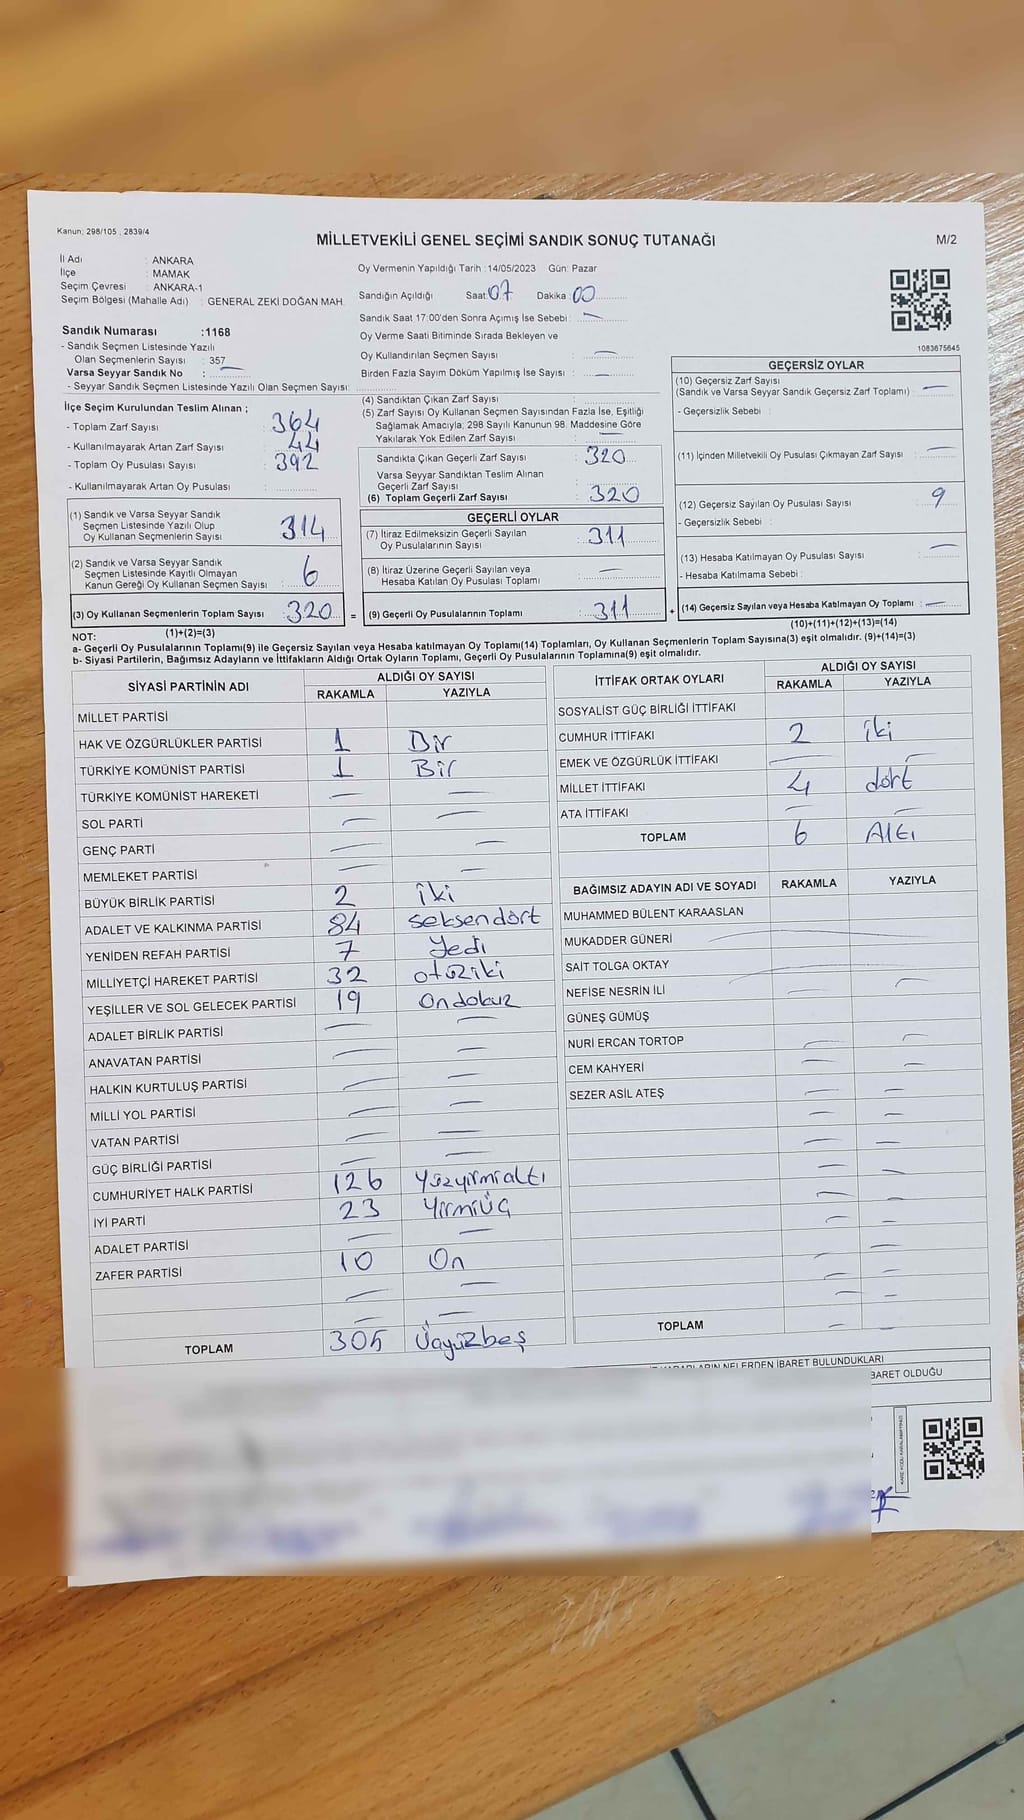 Kanun: 298/105 , 2839/4
MİLLETVEKİLİ GENEL SEÇİMİ SANDIK SONUÇ TUTANAĞI
M/2
İl Adı : ANKARA
İlçe : MAMAK
Seçim Çevresi : ANKARA-1
Seçim Bölgesi (Mahalle Adı) : GENERAL ZEKİ DOĞAN MAH.
Oy Vermenin Yapıldığı Tarih :14/05/2023 Gün: Pazar
Sandığın Açıldığı Saat: 07 Dakika : 00
Sandık Saat 17:00'den Sonra Açımış İse Sebebi : —
Oy Verme Saati Bitiminde Sırada Bekleyen ve
Oy Kullandırılan Seçmen Sayısı : —
Birden Fazla Sayım Döküm Yapılmış İse Sayısı : —
1083675645
Sandık Numarası :1168
- Sandık Seçmen Listesinde Yazılı
Olan Seçmenlerin Sayısı : 357
Varsa Seyyar Sandık No : —
- Seyyar Sandık Seçmen Listesinde Yazılı Olan Seçmen Sayısı:
İlçe Seçim Kurulundan Teslim Alınan ;
- Toplam Zarf Sayısı : 364
- Kullanılmayarak Artan Zarf Sayısı : 44
- Toplam Oy Pusulası Sayısı : 392
- Kullanılmayarak Artan Oy Pusulası :
(1) Sandık ve Varsa Seyyar Sandık
Seçmen Listesinde Yazılı Olup
Oy Kullanan Seçmenlerin Sayısı : 314
(2) Sandık ve Varsa Seyyar Sandık
Seçmen Listesinde Kayıtlı Olmayan
Kanun Gereği Oy Kullanan Seçmen Sayısı : 6
(3) Oy Kullanan Seçmenlerin Toplam Sayısı : 320 =
(1)+(2)=(3)
(4) Sandıktan Çıkan Zarf Sayısı :
(5) Zarf Sayısı Oy Kullanan Seçmen Sayısından Fazla İse, Eşitliği
Sağlamak Amacıyla; 298 Sayılı Kanunun 98. Maddesine Göre
Yakılarak Yok Edilen Zarf Sayısı : —
Sandıkta Çıkan Geçerli Zarf Sayısı : 320
Varsa Seyyar Sandıktan Teslim Alınan
Geçerli Zarf Sayısı :
(6) Toplam Geçerli Zarf Sayısı : 320
GEÇERLİ OYLAR
(7) İtiraz Edilmeksizin Geçerli Sayılan
Oy Pusulalarının Sayısı : 311
(8) İtiraz Üzerine Geçerli Sayılan veya
Hesaba Katılan Oy Pusulası Toplamı : —
(9) Geçerli Oy Pusulalarının Toplamı : 311 +
GEÇERSİZ OYLAR
(10) Geçersiz Zarf Sayısı
(Sandık ve Varsa Seyyar Sandık Geçersiz Zarf Toplamı) : —
- Geçersizlik Sebebi :
(11) İçinden Milletvekili Oy Pusulası Çıkmayan Zarf Sayısı : —
(12) Geçersiz Sayılan Oy Pusulası Sayısı : 9
- Geçersizlik Sebebi :
(13) Hesaba Katılmayan Oy Pusulası Sayısı : —
- Hesaba Katılmama Sebebi :
(14) Geçersiz Sayılan veya Hesaba Katılmayan Oy Toplamı : —
(10)+(11)+(12)+(13)=(14)
NOT:
a- Geçerli Oy Pusulasının Toplamı(9) ile Geçersiz Sayılan veya Hesaba katılmayan Oy Toplamı(14) Toplamları, Oy Kullanan Seçmenlerin Toplam Sayısına(3) eşit olmalıdır. (9)+(14)=(3)
b- Siyasi Partilerin, Bağımsız Adayların ve İttifakların Aldığı Ortak Oyların Toplamı, Geçerli Oy Pusulalarının Toplamına(9) eşit olmalıdır.
SİYASİ PARTİNİN ADI ALDIĞI OY SAYISI
RAKAMLA YAZIYLA
MİLLET PARTİSİ
HAK VE ÖZGÜRLÜKLER PARTİSİ 1 Bir
TÜRKİYE KOMÜNİST PARTİSİ 1 Bir
TÜRKİYE KOMÜNİST HAREKETİ — —
SOL PARTİ — —
GENÇ PARTİ — —
MEMLEKET PARTİSİ — —
BÜYÜK BİRLİK PARTİSİ 2 iki
ADALET VE KALKINMA PARTİSİ 84 seksendört
YENİDEN REFAH PARTİSİ 7 Yedi
MİLLİYETÇİ HAREKET PARTİSİ 32 otuziki
YEŞİLLER VE SOL GELECEK PARTİSİ 19 Ondokuz
ADALET BİRLİK PARTİSİ — —
ANAVATAN PARTİSİ — —
HALKIN KURTULUŞ PARTİSİ — —
MİLLİ YOL PARTİSİ — —
VATAN PARTİSİ — —
GÜÇ BİRLİĞİ PARTİSİ — —
CUMHURİYET HALK PARTİSİ 126 Yüzyirmialtı
İYİ PARTİ 23 Yirmiüç
ADALET PARTİSİ — —
ZAFER PARTİSİ 10 On
— —
— —
TOPLAM 305 Üçyüzbeş
İTTİFAK ORTAK OYLARI ALDIĞI OY SAYISI
RAKAMLA YAZIYLA
SOSYALİST GÜÇ BİRLİĞİ İTTİFAKI
CUMHUR İTTİFAKI 2 iki
EMEK VE ÖZGÜRLÜK İTTİFAKI — —
MİLLET İTTİFAKI 4 dört
ATA İTTİFAKI — —
TOPLAM 6 Altı
BAĞIMSIZ ADAYIN ADI VE SOYADI RAKAMLA YAZIYLA
MUHAMMED BÜLENT KARAASLAN
MUKADDER GÜNERİ
SAİT TOLGA OKTAY
NEFİSE NESRİN İLİ
GÜNEŞ GÜMÜŞ
NURİ ERCAN TORTOP
CEM KAHYERİ
SEZER ASİL ATEŞ
TOPLAM — —
NELERDEN İBARET BULUNDUKLARI
BARET OLDUĞU